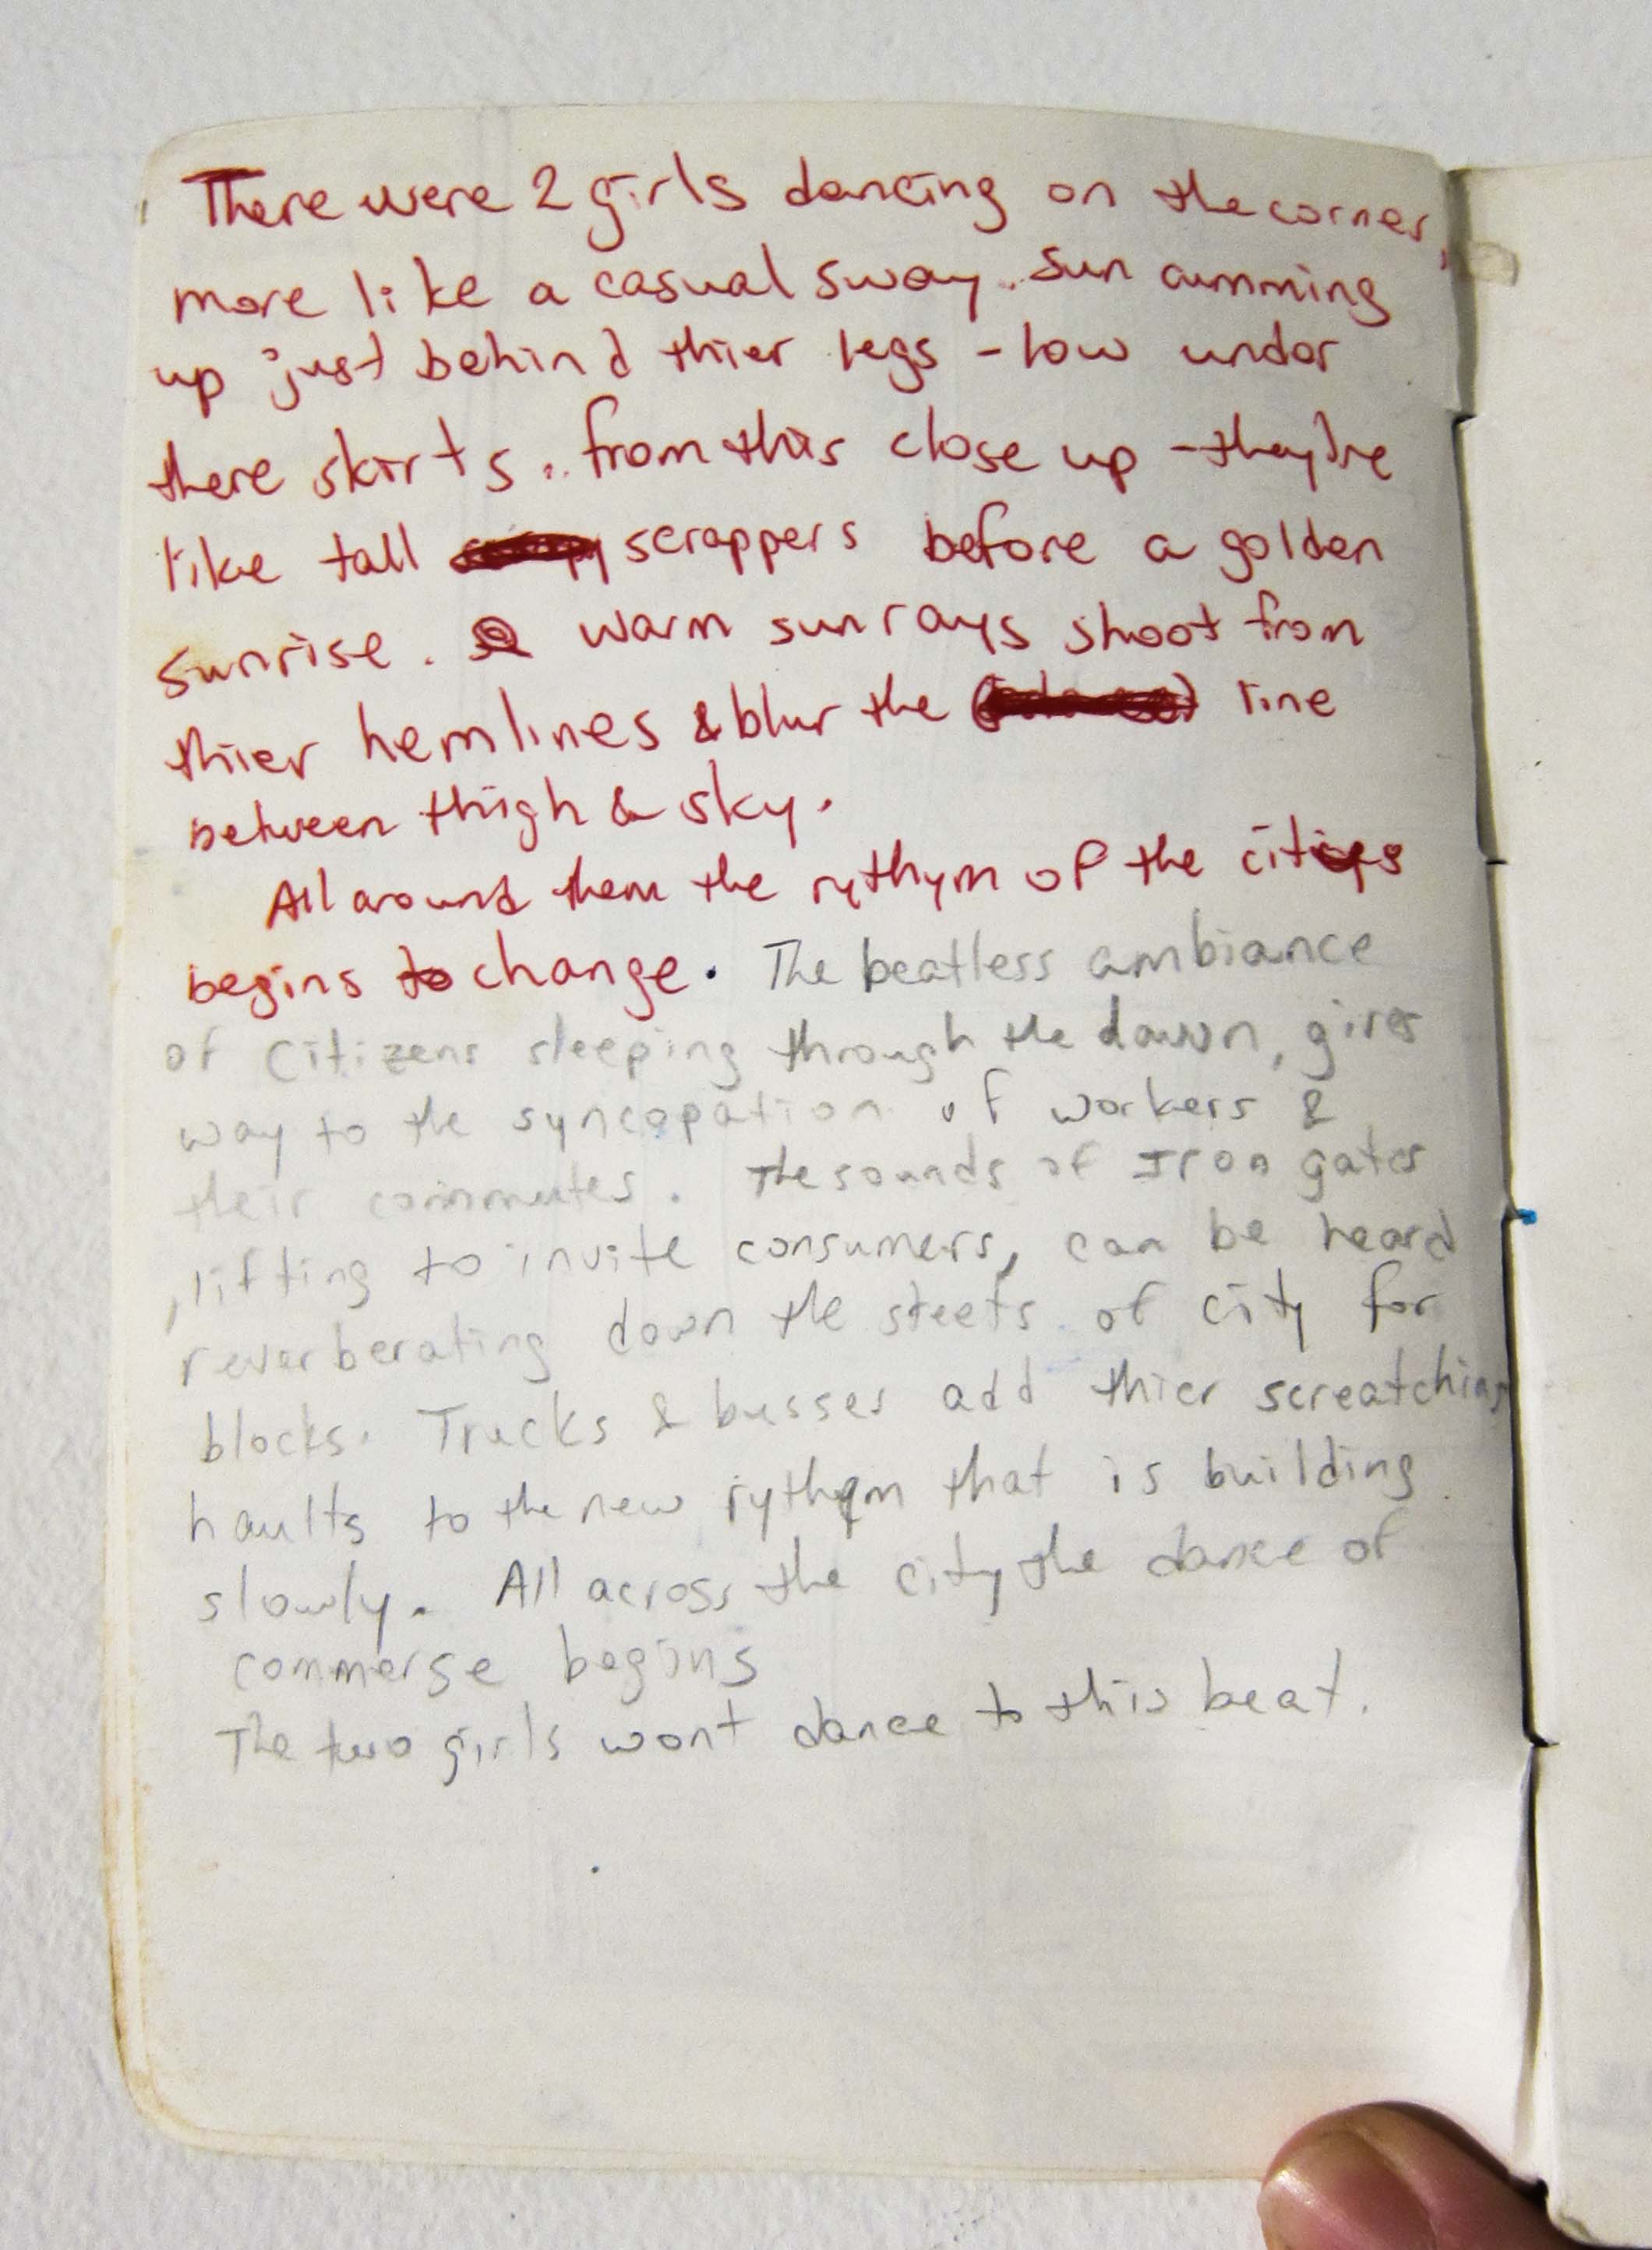 There were 2 girls dancing on the corner,
more like a casual sway.. sun cumming
up just behind thier legs - low under
there skirts.. from this close up - they're
like tall scrappers before a golden
sunrise. warm sun rays shoot from
thier hemlines & blur the line
between thigh & sky.
All around them the rythym of the citys
begins to change. The beatless ambiance
of citizens sleeping through the dawn, gives
way to the syncopation of workers &
their commutes. The sounds of Iron gates
, lifting to invite consumers, can be heard
reverberating down the steets of city for
blocks. Trucks & busses add thier screatching
haults to the new rythym that is building
slowly. All across the city the dance of
commerse begins
The two girls wont dance to this beat.